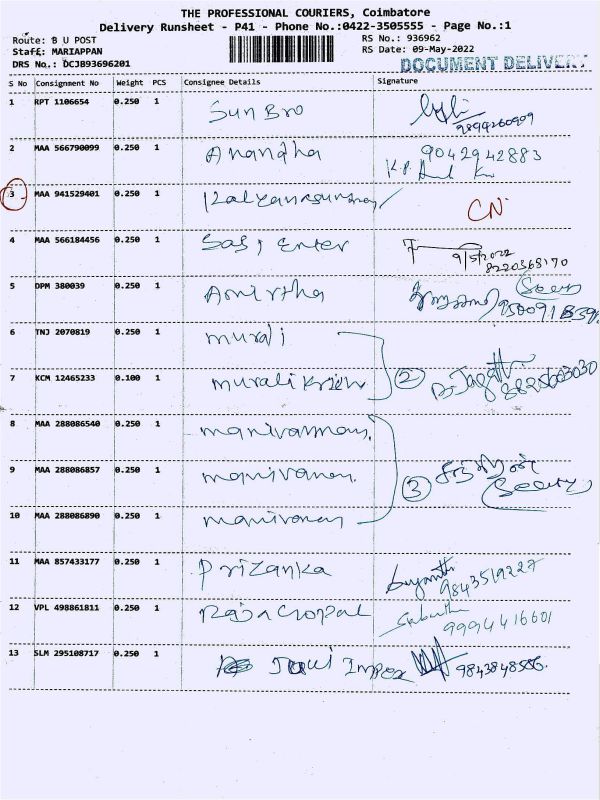 THE PROFESSIONAL COURIERS, Coimbatore
Delivery Runsheet - P41 - Phone No.:0422-3505555 - Page No.:1
Route: B U POST RS No.: 936962
Staff: MARIAPPAN RS Date: 09-May-2022
DRS No.: DCJB93696201 DOCUMENT DELIVERY
S No Consignment No Weight PCS Consignee Details Signature
1 RPT 1106654 0.250 1 Sun Bro
2 MAA 566790099 0.250 1 Anandha 9042942883
3 MAA 941529401 0.250 1 CN
4 MAA 566184456 0.250 1 Sasi Enter 9/5/2022
8220368170
5 DPM 380039 0.250 1 Amirtha
6 TNJ 2070819 0.250 1 murali
7 KCM 12465233 0.100 1 murali Krish 2
8 MAA 288086540 0.250 1
9 MAA 288086857 0.250 1 manivanan 3
10 MAA 288086890 0.250 1 manivanan
11 MAA 857433177 0.250 1 Prizanka
9843519227
12 VPL 498861811 0.250 1 Raja Gopal
9994416601
13 SLM 295108717 0.250 1 Impex